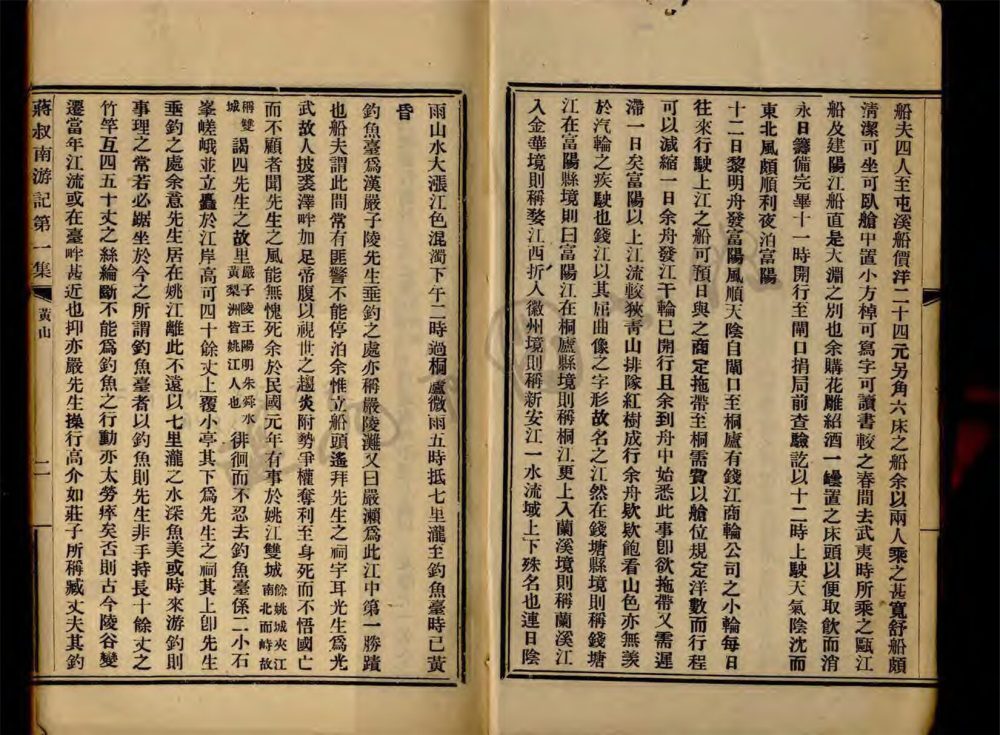 船夫四人至屯溪船價洋二十四元另角六床之船余以兩人乘之甚寬舒船頗
清潔可坐可臥艙中置小方棹可寫字可讀書較之春間去武夷時所乘之甌江
船及建陽江船直是天淵之別也余購花雕紹酒一罎置之床頭以便取飲而消
永日籌備完畢十一時開行至閘口捐局前查驗訖以十二時上駛天氣陰沈而
東北風頗順利夜泊富陽
十二日黎明舟發富陽風順天陰自閘口至桐廬有錢江商輪公司之小輪每日
往來行駛上江之船可預日與之商定拖帶至桐需費以艙位規定洋數而行程
可以減縮一日余舟發江干輪已開行且余到舟中始悉此事卽欲拖帶又需遲
滯一日矣富陽以上江流較狹靑山排隊紅樹成行余舟欵欵飽看山色亦無羨
於汽輪之疾駛也錢江以其屈曲像之字形故名之江然在錢塘縣境則稱錢塘
江在富陽縣境則曰富陽江在桐廬縣境則稱桐江更上入蘭溪境則稱蘭溪江
入金華境則稱婺江西折入徽州境則稱新安江一水流域上下殊名也連日陰
雨山水大漲江色混濁下午二時過桐廬微雨五時抵七里瀧至釣魚臺時已黃
昏
釣魚臺爲漢嚴子陵先生垂釣之處亦稱嚴陵灘又曰嚴瀨爲此江中第一勝蹟
也船夫謂此間常有匪警不能停泊余惟立船頭遙拜先生之祠宇耳光生爲光
武故人披裘澤畔加足帝腹以視世之趨炎附勢爭權奪利至身死而不悟國亡
而不顧者聞先生之風能無愧死余於民國元年有事於姚江雙城餘姚城夾江南北而峙故
稱雙城謁四先生之故里嚴子陵王陽明朱舜水黃梨洲皆姚江人也徘徊而不忍去釣魚臺係二小石
峯嵯峨並立矗於江岸高可四十餘丈上覆小亭其下爲先生之祠其上卽先生
垂釣之處余意先生居在姚江離此不遠以七里瀧之水深魚美或時來游釣則
事理之常若必踞坐於今之所謂釣魚臺者以釣魚則先生非手持長十餘丈之
竹竿互四五十丈之絲綸斷不能爲釣魚之行動亦太勞瘁矣否則古今陵谷變
遷當年江流或在臺畔甚近也抑亦嚴先生操行高介如莊子所稱臧丈夫其釣
蔣叔南游記第一集
黃山
二